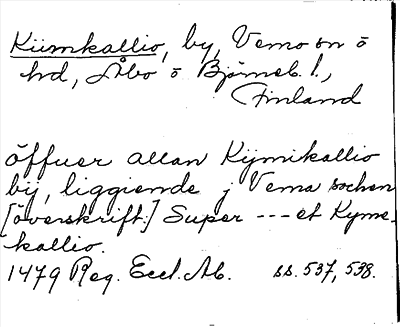 Kiimkallio, by, Vemo sn o
hd, Åbo o Björneb. l.,
Finland
öffuer allan Kijmikallio
bij, liggiende j Vema sochen
[överskrift:] Super --- et Kyme-
kallio.
1479 Reg. Eccl. Ab. ss. 537, 538.